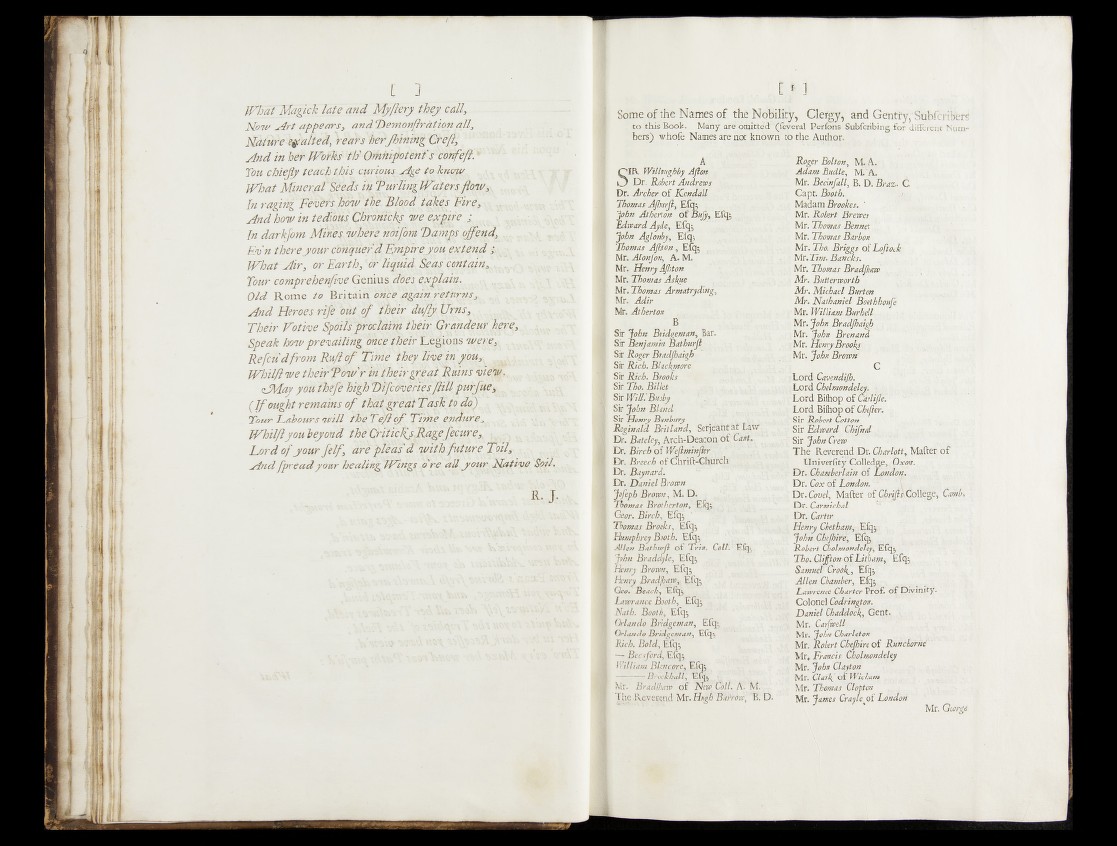 [ ]
What Magick late and Myſtery they call,
Now Art appears, and Demonſtration all,
Nature exalted, rears her ſhining Creſt,
And in her Works th' Omnipotent's confeſt.
You chiefly teach this curious Age to know
What Mineral Seeds in Purling Waters flow,
In raging Fevers how the Blood takes Fire,
And how in tedious Chronicks we expire ;
In darkſom Mines where noiſom Damps offend,
Ev'n there your conquer'd Empire you extend ;
What Air, or Earth, or liquid Seas contain,
Your comprehenſive Genius does explain.
Old Rome to Britain once again returns,
And Heroes riſe out of their duſty Urns,
Their Votive Spoils proclaim their Grandeur here,
Speak how prevailing once their Legions were,
Reſcu'd from Ruſt of Time they live in you,
Whilſt we their Pow'r in their great Ruins view.
May you theſe high Diſcoveries ſtill purſue,
(If ought remains of that great Task to do)
Your Labours will the Teſt of Time endure.
Whilſt you beyond the Critick's Rage ſecure,
Lord of your ſelf, are pleas'd with future Toil,
And ſpread your healing Wings o're all your Native Soil.
R. J.
[ 1 ]
Some of the Names of the Nobility, Clergy, and Gentry, Subſcribers
to this Book. Many are omitted (ſeveral Perſons Subſcribing for different Num-
bers) whoſe Names are not known to the Author.
A
SIR Willoughby Aſton
Dr. Robert Andrews
Dr. Archer of Kendall
Thomas Aſhurſt, Eſq;
John Atherton of Buſy, Eſq;
Edward Ayde, Eſq;
John Aglonby, Eſq;
Thomas Aſhton, Eſq;
Mr. Alonſon, A. M.
Mr. Henry Aſhton
Mr. Thomas Askue
Mr. Thomas Armatryding,
Mr. Adir
Mr. Atherton
B
Sir John Bridgeman, Bar.
Sir Benjamin Bathurſt
Sir Roger Bradſhaigh
Sir Rich. Blackmore
Sir Rich. Brooks
Sir Tho. Billet
Sir Will. Busby
Sir John Bland
Sir Henry Bunbury
Reginald Britland, Serjeant at Law
Dr. Bateley, Arch-Deacon of Cant.
Dr. Birch of Weſtminſter
Dr. Breech of Chriſt-Church
Dr. Baynard.
Dr. Daniel Brown
Joſeph Brown, M. D.
Thomas Brotherton, Eſq;
Geor. Birch, Eſq;
Thomas Brooks, Eſq;
Humphrey Booth, Eſq;
Allen Bathurſt of Trin. Coll. Eſq;
John Braddyle, Eſq;
Henry Brown, Eſq;
Henry Bradſhaw, Eſq;
Geo. Beach, Eſq;
Lawrance Booth, Eſq;
Nath. Booth, Eſq;
Orlando Bridgeman, Eſq;
Orlando Bridgeman, Eſq;
Rich. Bold, Eſq;
— Beresford, Eſq;
William Blencore, Eſq;
——— Brockhall, Eſq;
Mr. Bradſhaw of New Coll. A. M.
The Reverend Mr. Hugh Barrow, B. D.
Roger Bolton, M. A.
Adam Budle, M. A.
Mr. Becinſall, B. D. Braz. C
Capt. Booth.
Madam Brookes.
Mr. Robert Brewer
Mr. Thomas Bennet
Mr. Thomas Barbon
Mr. Tho. Briggs of Loſtock
Mr. Tim. Bancks.
Mr. Thomas Bradſhaw
Mr. Butterworth
Mr. Michael Burton
Mr. Nathaniel Boothhouſe
Mr. William Burhell
Mr. John Bradſhaigh
Mr. John Brenand
Mr. Henry Brooks
Mr. John Brown
C
Lord Cavendiſh.
Lord Cholmondeley.
Lord Biſhop of Carliſle.
Lord Biſhop of Cheſter.
Sir Robert Cotton
Sir Edward Chiſnal
Sir John Crew
The Reverend Dr. Charlott, Maſter of
Univerſity Colledge, Oxon.
Dr. Chamberlain of London.
Dr. Cox of London.
Dr. Covel, Maſter of Chriſts College, Camb.
Dr. Carmichal
Dr. Carter
Henry Chetham, Eſq;
John Cheſhire, Eſq;
Robert Cholmondeley, Eſq;
Tho. Clifton of Litham, Eſq;
Samuel Crook, Eſq;
Allen Chamber, Eſq;
Lawrence Charter Prof. of Divinity.
Colonel Codrington.
Daniel Chaddock, Gent.
Mr. Carſwell
Mr. John Charleton
Mr. Robert Cheſhire of Runckorne
Mr. Francis Cholmondeley
Mr. John Clayton
Mr. Clark of Wickam
Mr. Thomas Clopton
Mr. James Crayle of London
Mr. George